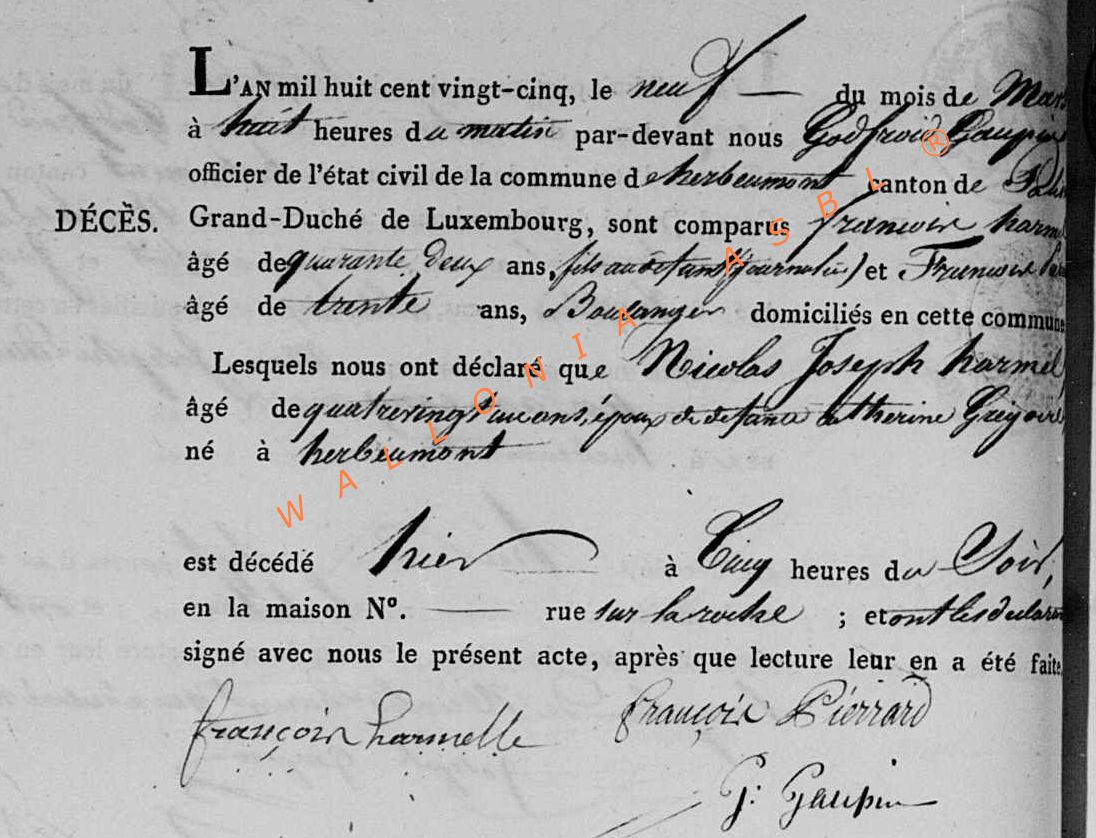 L'AN mil huit cent vingt-cinq, le neuf du mois de Mars
à huit heures du matin par-devant nous Godfroid Gaupin
officier de l'état civil de la commune de herbeumont canton de
DÉCÈS. Grand-Duché de Luxembourg, sont comparus francoix harmel
âgé de quarante deux ans, fils au défant (journalier) et Francoix
âgé de trente ans, Boulanger domiciliés en cette commune
Lesquels nous ont déclaré que Nicolas Joseph harmel
âgé de quatrevingt ans, époux de defante catherine Grégoire,
né à herbeumont
est décédé hier à Cinq heures du Soir,
en la maison N°. rue sur la roche ; et ont les déclarans
signé avec nous le présent acte, après que lecture leur en a été faite.
françoix harmelle françoix Piérrard
G: Gaupin
WALLONIA ASBL ®